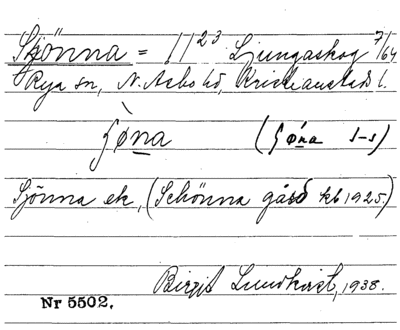 Skönna = 1/1 23 Ljungaskog 7/64
Rya sn, N. Åsbo hd, Kristianstads l.
ʃø̀na (ʃǿna s-s)
Sjönna ek, (Schönna gård kb 1925.)
Birgit Lundkvist, 1938.
Nr 5502.